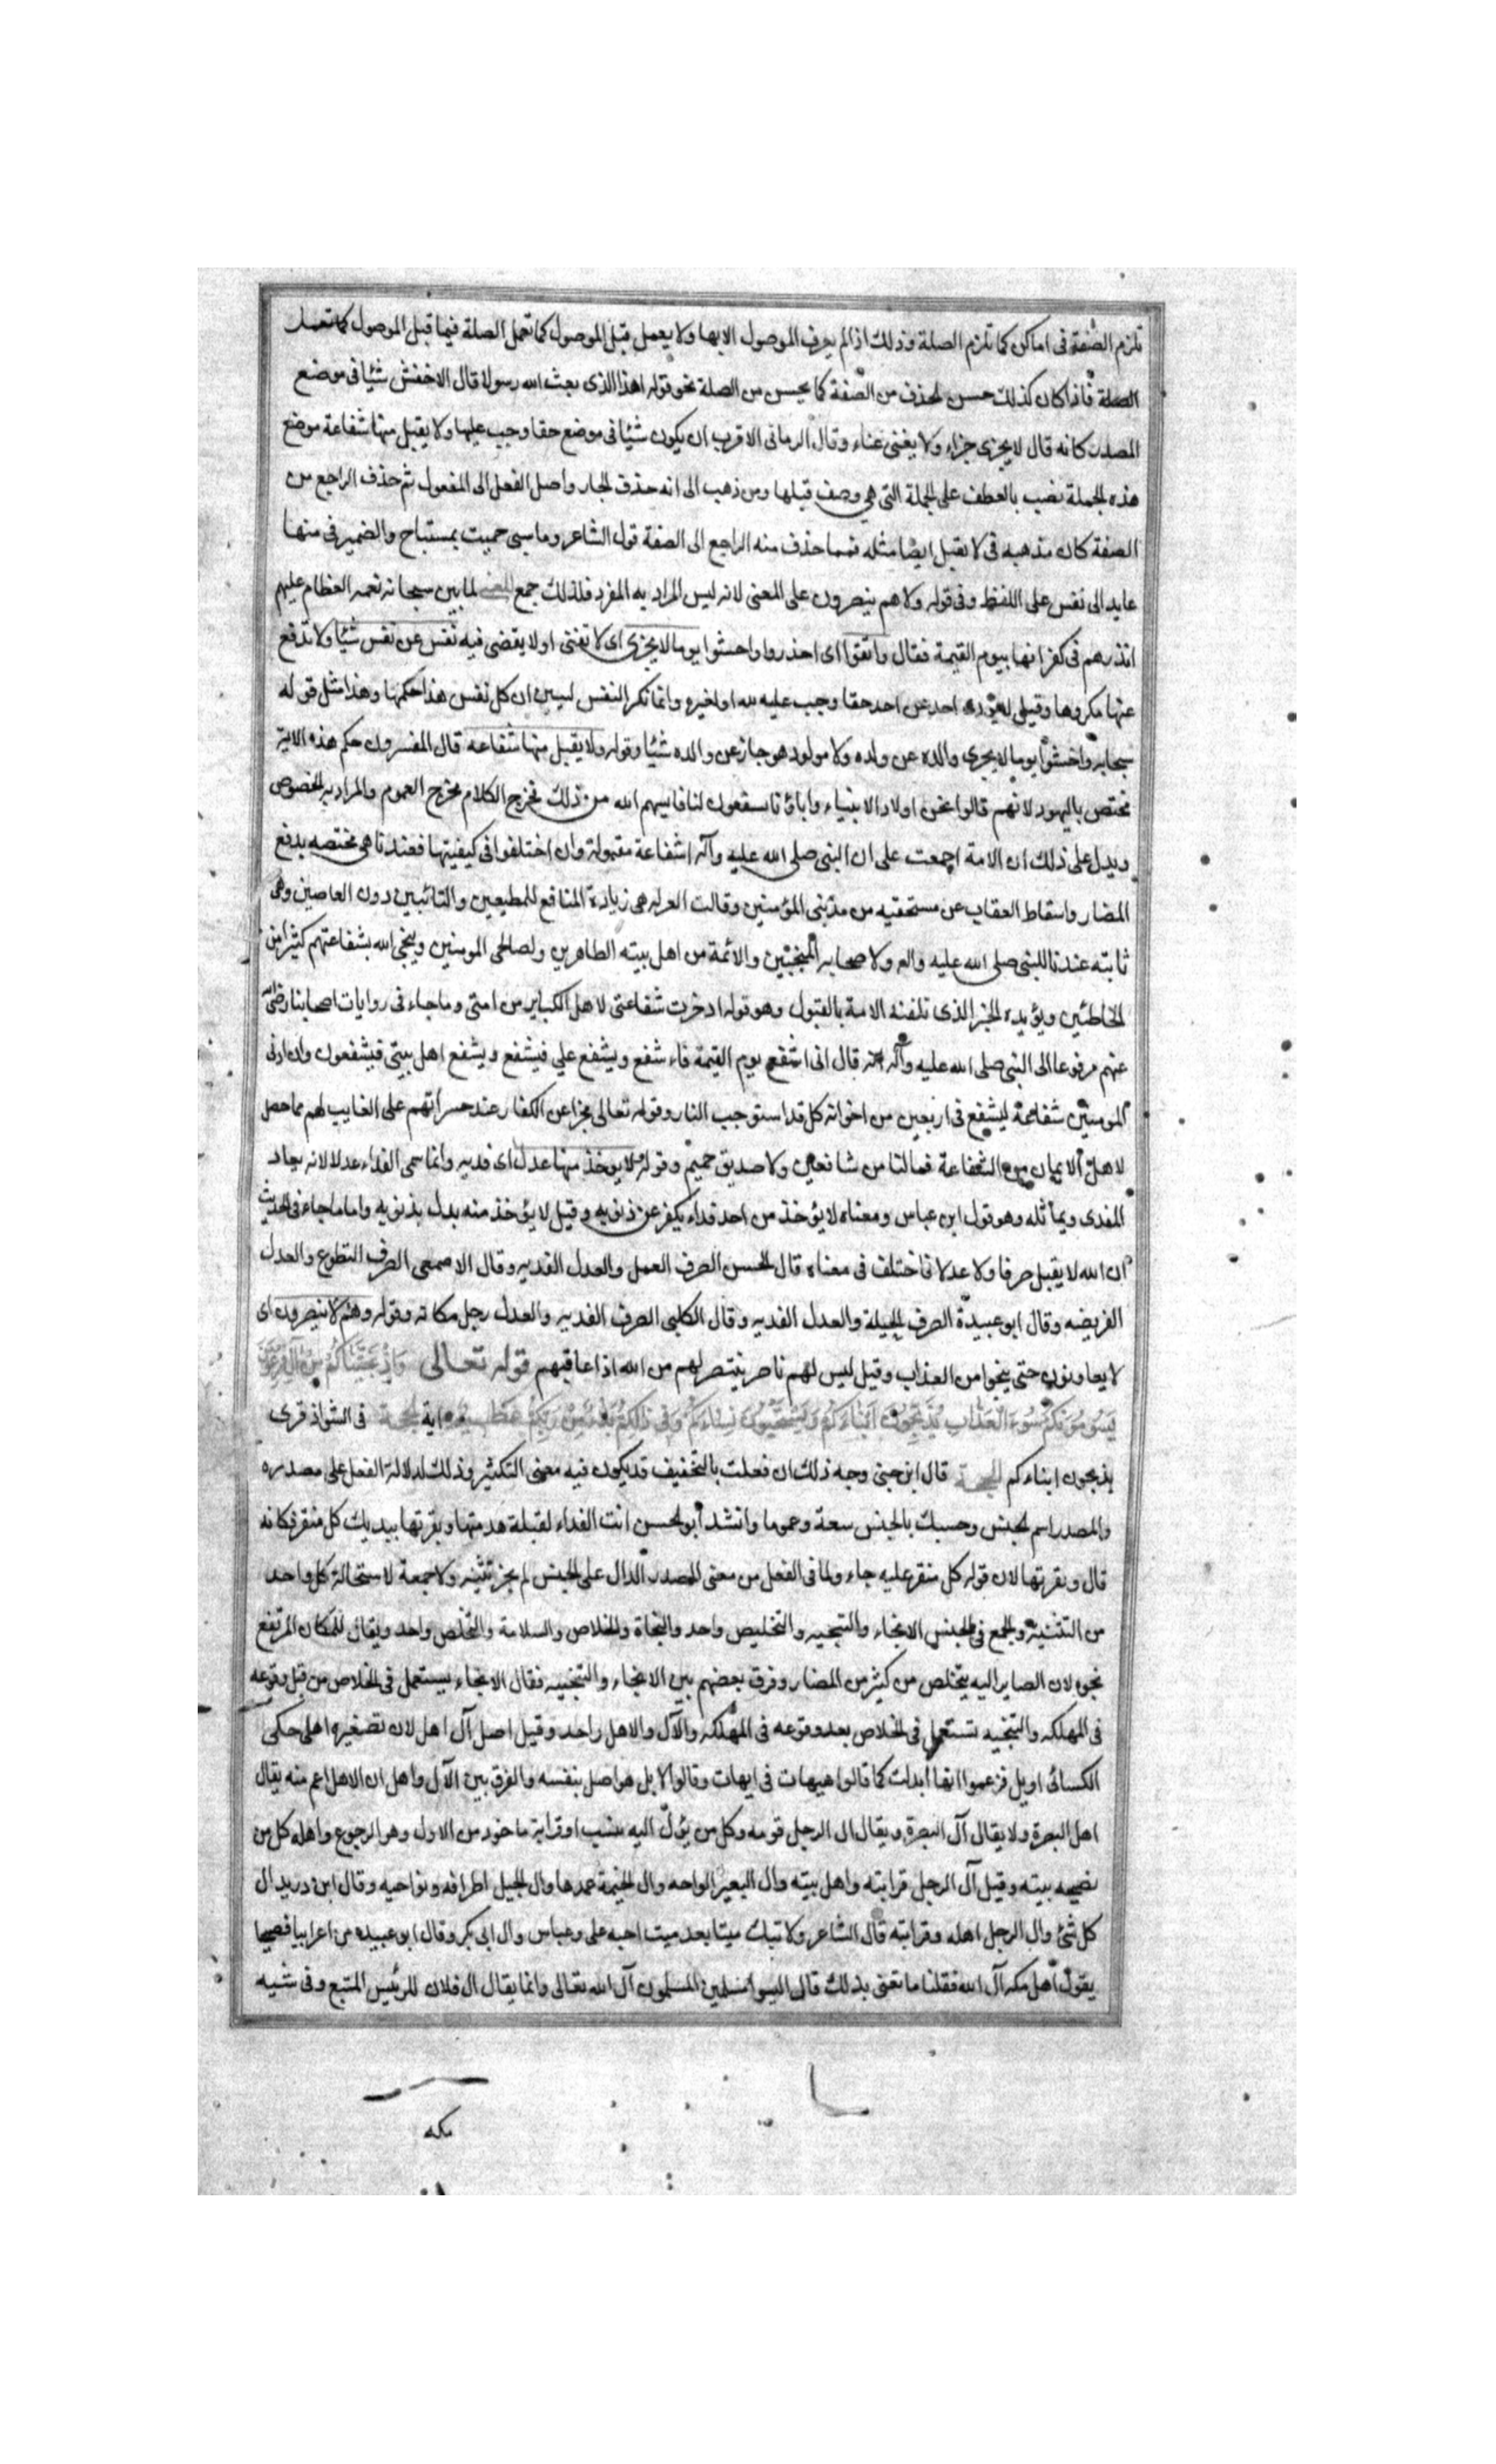 تلزم الصفة فى اماكن كما تلزم الصلة وذلك اذا لم يعرف الموصول الا بها ولا يعمل قبل الموصول كما تعمل الصلة فيما قبل الموصول كما تعمل
الصلة فاذا كان كذلك حسن الحذف من الصفة كما يحسن من الصلة نحو قوله اهذا الذى بعث الله رسولا قال الاخفش شيئا فى موضع
المصدر كانه قال لا يجزى جزاء ولا يغنى غناء وقال الرمانى الاقرب ان يكون شيئا فى موضع حقا وجب عليها ولا يقبل منها شفاعة موضع
هذه الجملة نصب بالعطف على الجملة التى هى وصف قبلها ومن ذهب الى انه حذف الجار واصل الفعل الى المفعول ثم حذف الراجع من
الصفة كان مذهبه فى لا يقبل ايضا مثله فمما حذف منه الراجع الى الصفة قول الشاعر وما سى حميت بمستباح والضمير فى منها
عايد الى نفس على اللفظ وفى قوله ولا هم ينصرون على المعنى لانه ليس المراد به المفرد فلذلك جمع المعنى لما بين سبحانه نعمه العظام عليهم
انذرهم فى كفرانها بيوم القيمة فقال واتقوا اى احذروا واخشوا يوما لا يجزى اى لا تغنى او لا يقضى فيه نفس عن نفس شيئا ولا تدفع
عنها مكروها وقيل لا يؤدى احد عن احد حقا وجب عليه لله او لغيره وانما نكر النفس ليبين ان كل نفس هذا حكمها وهذا مثل قوله
سبحانه واخشوا يوما لا يجزى والد عن ولده ولا مولود هو جاز عن والده شيئا وقوله ولا يقبل منها شفاعة قال المفسرون حكم هذه الاية
مختص باليهود لانهم قالوا نحن اولاد الانبياء واباؤنا يسفعون لنا فايسهم الله من ذلك فخرج الكلام مخرج العموم والمراد به الخصوص
ويدل على ذلك ان الامة اجمعت على ان للنبى صلى الله عليه وآله شفاعة مقبولة وان اختلفوا فى كيفيتها فعندنا هى مختصه بدفع
المضار واسقاط العقاب عن مستحقيه من مذنبى المؤمنين وقالت المعتزله هى زيادة المنافع للمطيعين والتائبين دون العاصين وهى
ثابته عندنا للنبى صلى الله عليه واله ولاصحابه المنتجبين والائمة من اهل بيته الطاهرين ولصالحى المومنين وينجى الله بشفاعتهم كثيرا من
الخاطئين ويؤيده الخبر الذى تلقته الامة بالقبول وهو قوله ادخرت شفاعتى لاهل الكباير من امتى وما جاء فى روايات اصحابنا رضى الله
عنهم مرفوعا الى النبى صلى الله عليه وآله انه قال انى اشفع يوم القيمة فاشفع ويشفع على فيشفع ويشفع اهل بيتى فيشفعون وان ادنى
المومنين شفاعة ليشفع فى اربعين من اخوانه كل قد استوجب النار وقوله تعالى مخبرا عن الكفار عند حسراتهم على الفايت لهم مما حصل
لاهل الايمان من الشفاعة فما لنا من شافعين ولا صديق حميم وقوله ولا يوخذ منها عدل اى فديه وانما سمى الفداء عدلا لانه يعادل
المفدى ويماثله وهو قول ابن عباس ومعناه لا يؤخذ من احد فداء يكفر عن ذنوبه وقيل لا يؤخذ منه بدل بذنوبه واما ما جاء فى الحديث
ان الله لا يقبل صرفا ولا عدلا فاختلف فى معناه قال الحسن الصرف العمل والعدل الفديه وقال الاصمعى الصرف التطوع والعدل
الفريضه وقال ابو عبيدة الصرف الحيلة والعدل الفديه وقال الكلبى الصرف الفديه والعدل رجل مكانه وقوله وهم لا ينصرون اى
لا يعاونون حتى ينجوا من العذاب وقيل ليس لهم ناصر ينتصر لهم من الله اذا عاقبهم قوله تعالى وَاِذْ نَجَّيْنَاكُمْ مِنْ آلِ فِرْعَوْنَ
يَسُومُونَكُمْ سُوءَ الْعَذَابِ يُذَبِّحُونَ اَبْنَاءَكُمْ وَيَسْتَحْيُونَ نِسَاءَكُمْ وَفِى ذٰلِكُمْ بَلَاءٌ مِنْ رَبِّكُمْ عَظِيمٌ اية فى الشواذ قرى
يذبحون ابناءكم الحجة قال ابن جنى وجه ذلك ان فعلت بالتخفيف قد يكون فيه معنى التكثير وذلك لدلالة الفعل على مصدره
والمصدر اسم الجنس وحسبك بالجنس سعة وعموما وانشد ابو الحسن انت الفداء لقبلة هدمتها ونقرتها بيديك كل منقر فكانه
قال ونقرتها لان قوله كل منقر عليه جاء ولما فى الفعل من معنى المصدر الدال على الجنس لم يجز تثنيته ولا جمعة لاستحالة كل واحد
من التثنية والجمع فى الجنس الانجاء والتنجيه والتخليص واحد والنجاة والخلاص والسلامة والتخلص واحد ويقال للمكان المرتفع
نجوه لان الصاير اليه يتخلص من كثير من المضار وفرق بعضهم بين الانجاء والتنجيه فقال الانجاء يستعمل فى الخلاص من قبل وقوعه
فى المهلكه والتنجيه تستعمل فى الخلاص بعد وقوعه فى المهلكه والآل والاهل واحد وقيل اصل آل اهل لان تصغيره اهيل حكى
الكسائى اويل فزعموا انها ابدلت كما قالوا هيهات فى ايهات وقالوا لا بل هو اصل بنفسه والفرق بين الآل واهل ان الاهل اعم منه يقال
اهل البصرة ولا يقال آل البصرة ويقال ال الرجل قومه وكل من يؤل اليه بنسب او قرابة ماخوذ من الاول وهو الرجوع واهله كل من
يضمه بيته وقيل آل الرجل قرابته واهل بيته وال البعير الواحه وال الخيمة عمدها وال الجبل اطرافه ونواحيه وقال ابن دريد ال
كل شئ وال الرجل اهله وقرابته قال الشاعر ولا تبك ميتا بعد ميت احبه على وعباس وال ابى بكر وقال ابو عبيده اعرابيا فصيحا
يقول اهل مكه آل الله فقلنا ما تعنى بذلك قال اليسوا مسلمين المسلمون آل الله تعالى وانما يقال ال فلان للرئيس المتبع وفى شبه
مكه